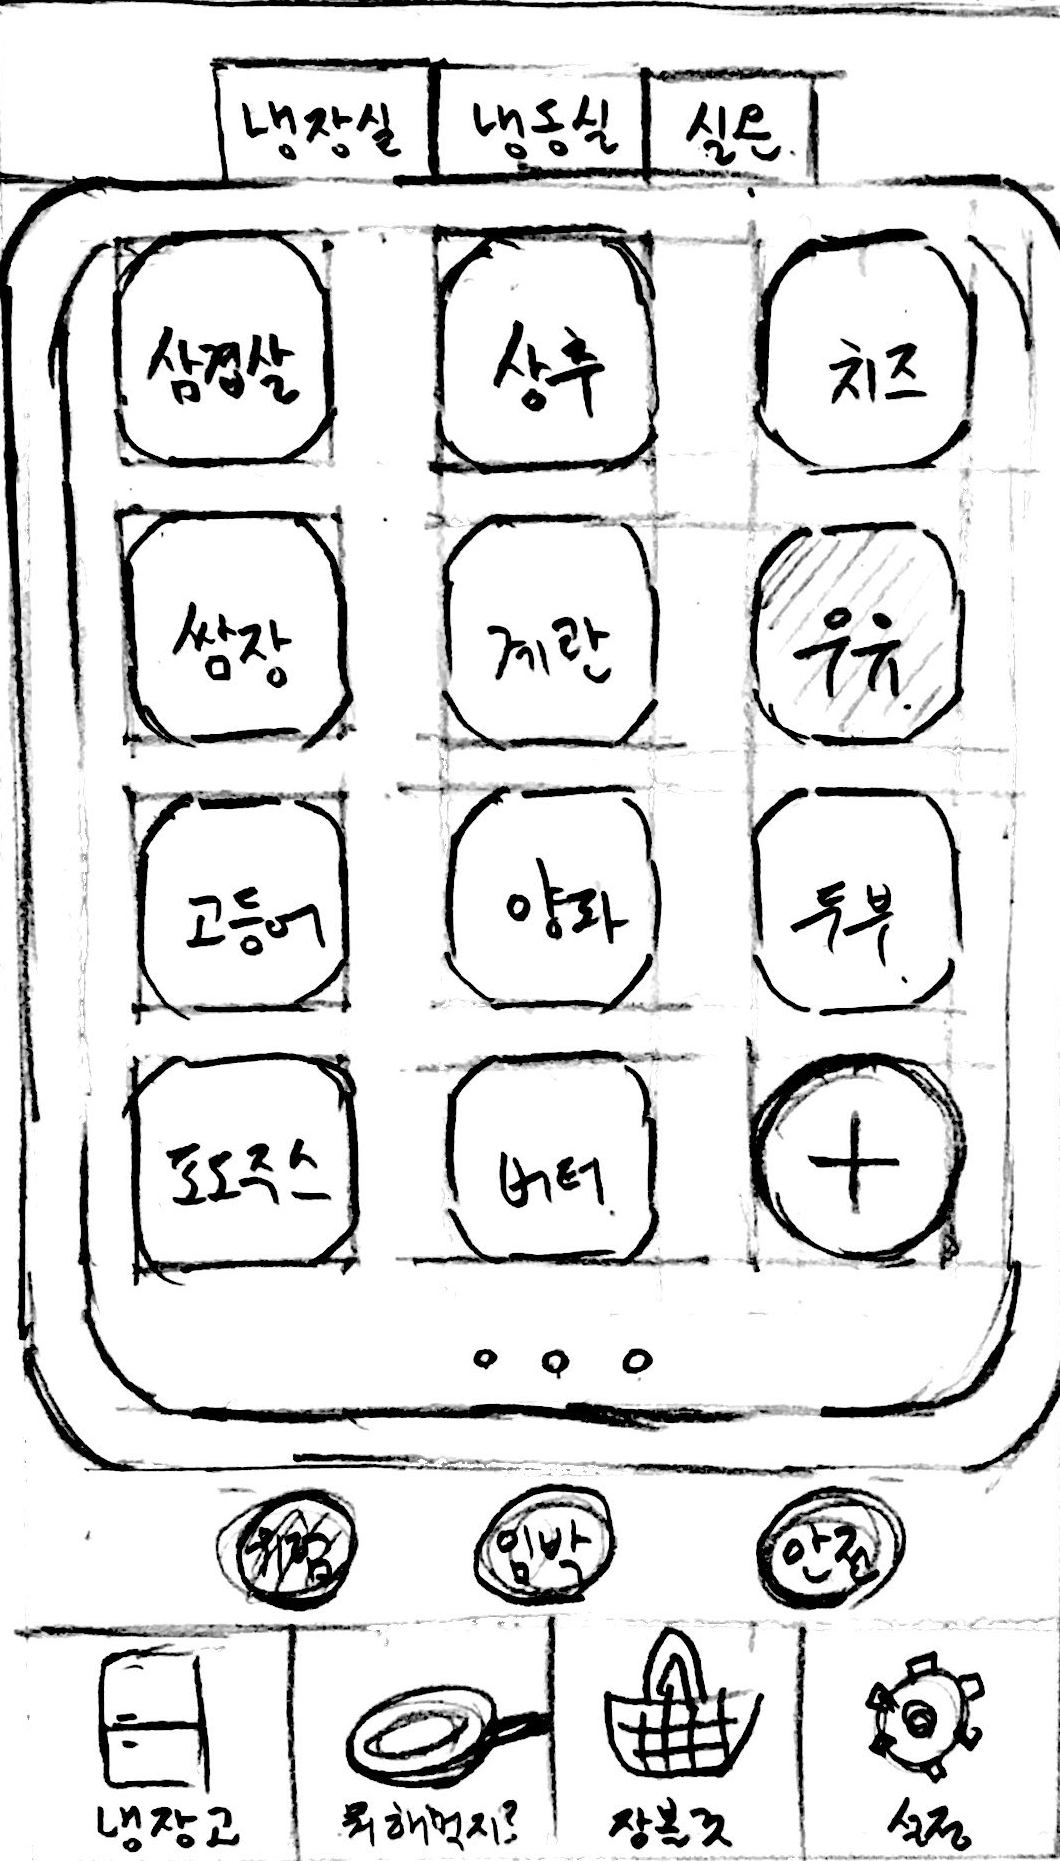 냉장실 냉동실 실온
삼겹살 상추 치즈
쌈장 계란 우유
고등어 양파 두부
포도주스 버터 +
위험 임박 안전
냉장고 뭐해먹지? 장볼것 설정